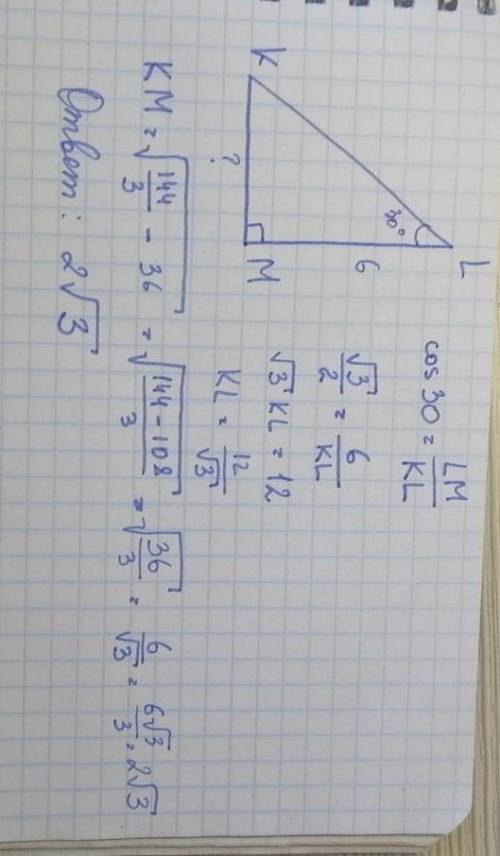 K
L
M
30°
6
?
cos 30 = LM/KL
√3/2 = 6/KL
√3 KL = 12
KL = 12/√3
KM = √(144/3 - 36) = √((144-108)/3) = √(36/3) = 6/√3 = 6√3/3 = 2√3
Ответ: 2√3